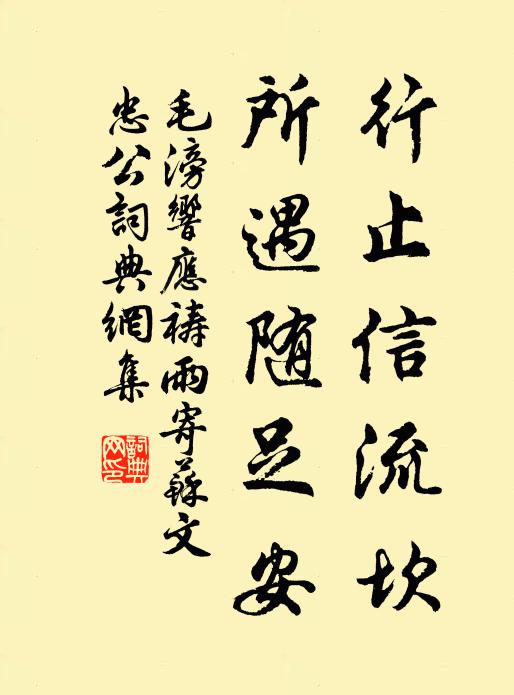 行止信流坎
所遇随足安
毛滂響應禱雨寄蘇文
忠公詞典網集
詞典
网印